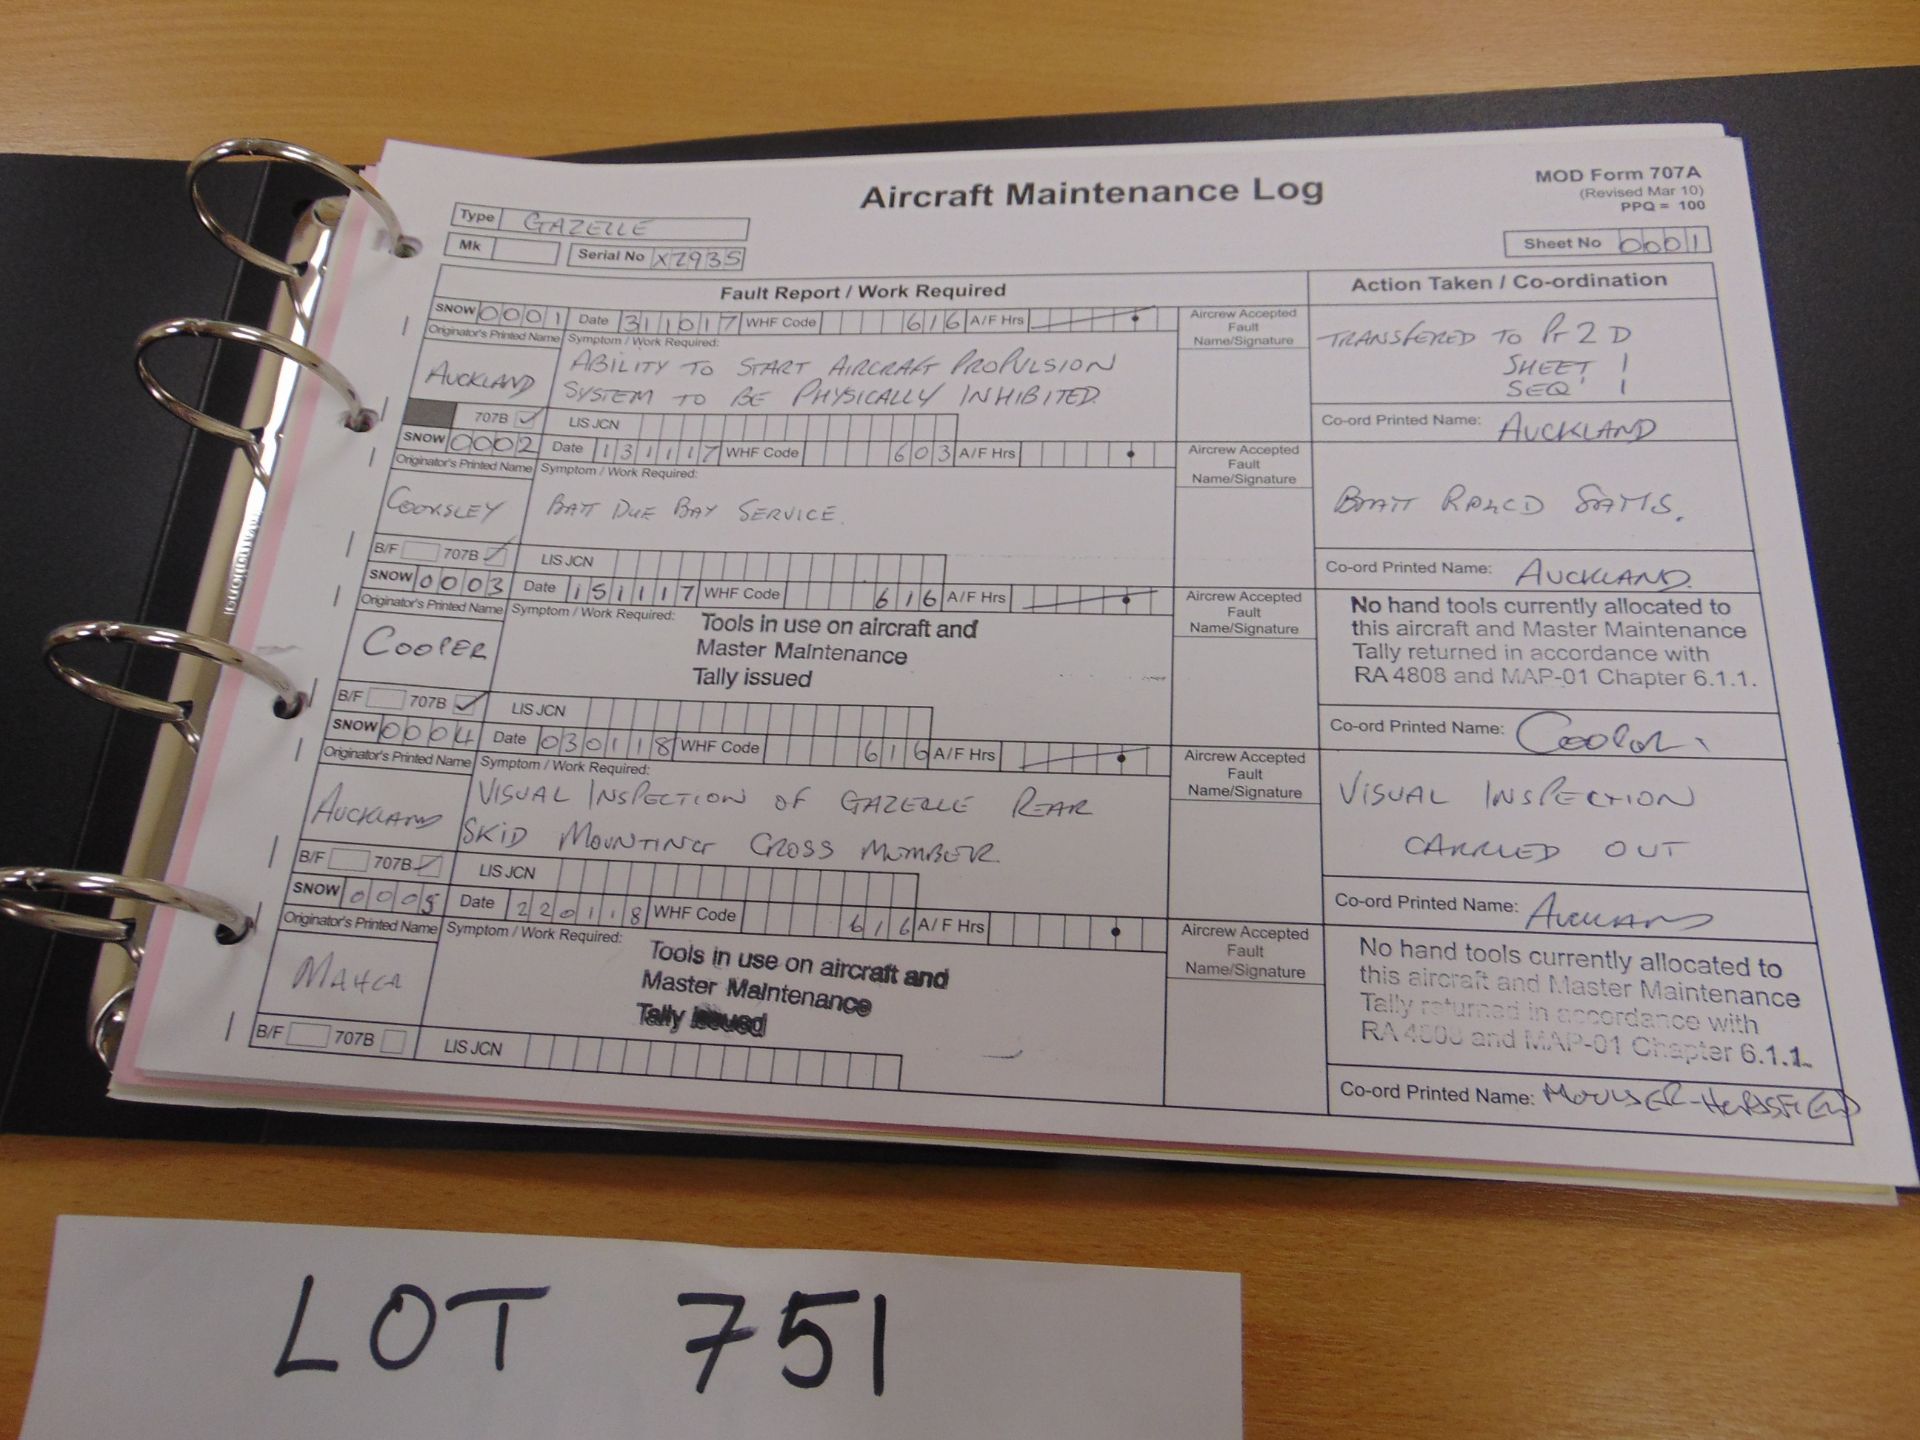 Aircraft Maintenance Log
MOD Form 707A
(Revised Mar 10)
PPQ = 100
Type GAZELLE
Mk
Serial No XZ935
Sheet No 0001
Fault Report / Work Required
Action Taken / Co-ordination
SNOW 0001 Date 311017 WHF Code 616 A/F Hrs
Originator's Printed Name
Symptom / Work Required:
Aircrew Accepted
Fault
Name/Signature
AUCKLAND
ABILITY TO START AIRCRAFT PROPULSION
SYSTEM TO BE PHYSICALLY INHIBITED.
TRANSFERED TO Pt 2 D
SHEET 1
SEQ' 1
707B ✓ LIS JCN
Co-ord Printed Name: AUCKLAND
SNOW 0002 Date 131117 WHF Code 603 A/F Hrs
Originator's Printed Name
Symptom / Work Required:
Aircrew Accepted
Fault
Name/Signature
COOKSLEY
BATT DUE BAY SERVICE.
BATT RPLCD SATIS.
B/F 707B ✓ LIS JCN
Co-ord Printed Name: AUCKLAND.
SNOW 0003 Date 151117 WHF Code 616 A/F Hrs
Originator's Printed Name
Symptom / Work Required:
Aircrew Accepted
Fault
Name/Signature
COOPER
Tools in use on aircraft and
Master Maintenance
Tally issued
No hand tools currently allocated to
this aircraft and Master Maintenance
Tally returned in accordance with
RA 4808 and MAP-01 Chapter 6.1.1.
B/F 707B ✓ LIS JCN
Co-ord Printed Name: Cooper
SNOW 0004 Date 030118 WHF Code 616 A/F Hrs
Originator's Printed Name
Symptom / Work Required:
Aircrew Accepted
Fault
Name/Signature
AUCKLAND
VISUAL INSPECTION OF GAZELLE REAR
SKID MOUNTING CROSS MEMBER.
VISUAL INSPECTION
CARRIED OUT
B/F 707B ✓ LIS JCN
Co-ord Printed Name: AUCKLAND
SNOW 0005 Date 220118 WHF Code 616 A/F Hrs
Originator's Printed Name
Symptom / Work Required:
Aircrew Accepted
Fault
Name/Signature
Tools in use on aircraft and
Master Maintenance
Tally issued
No hand tools currently allocated to
this aircraft and Master Maintenance
Tally returned in accordance with
RA 4808 and MAP-01 Chapter 6.1.1.
B/F 707B LIS JCN
Co-ord Printed Name: MOULSER-HORSFIELD
LOT 751